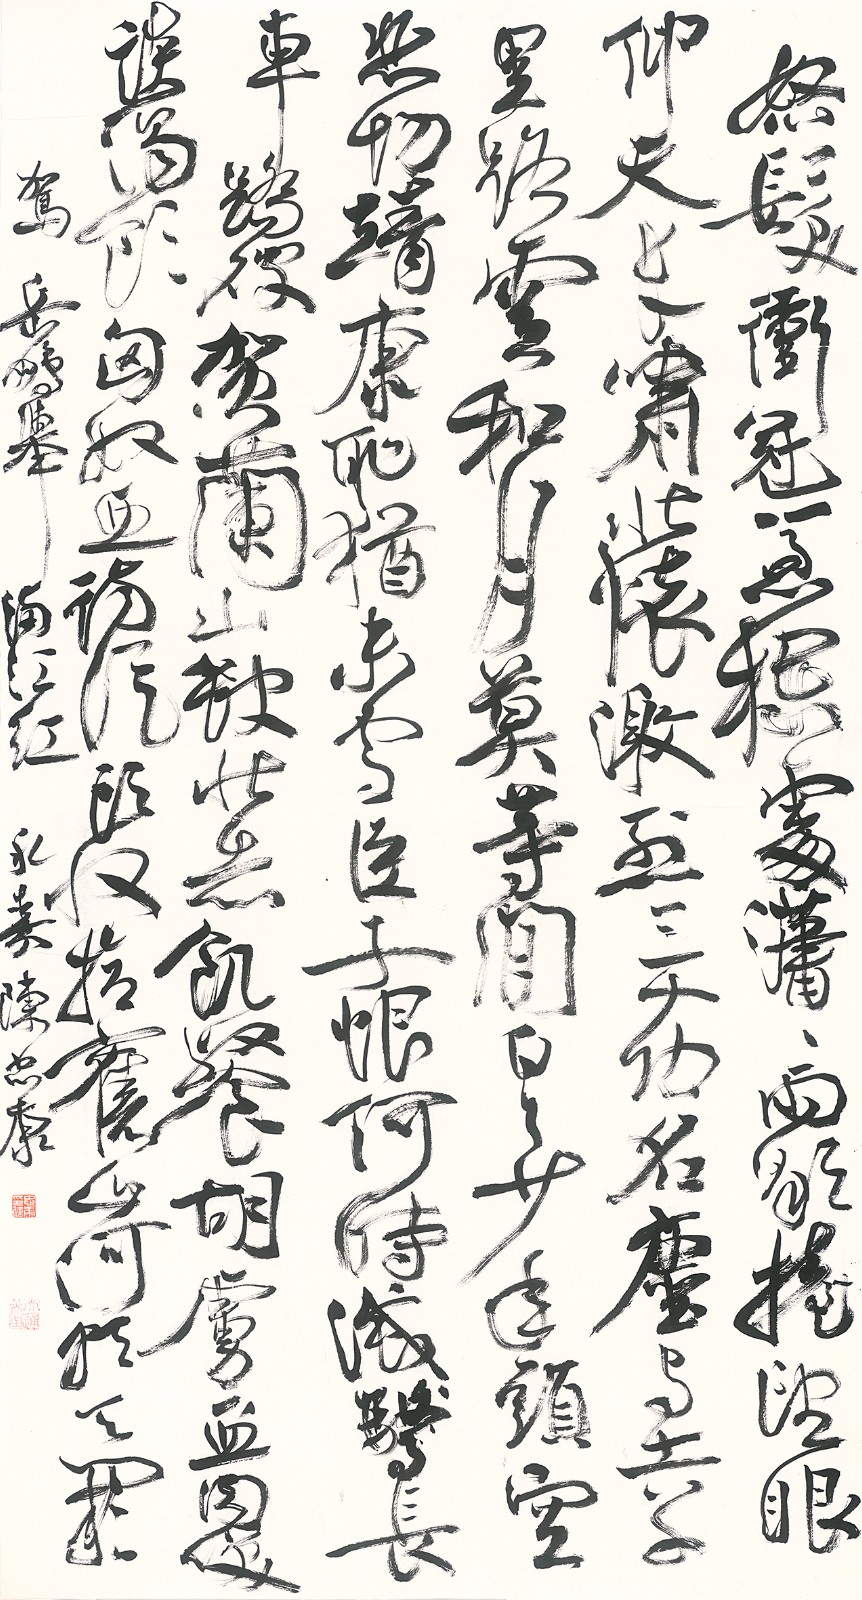 怒髮衝冠憑欄處瀟〻雨歇擡望眼
仰天長嘯壯懷激烈三千功名塵與土八千
里路雲和月莫等閒白了少年頭空
悲切靖康恥猶未雪臣子恨何時滅驚長
車踏破賀蘭山缺壯志飢餐胡虜血肉笑
談渴飲匈奴血待從頭收拾舊山河朝天闕
駕 岳鵬舉滿江紅 永嘉陳忠康